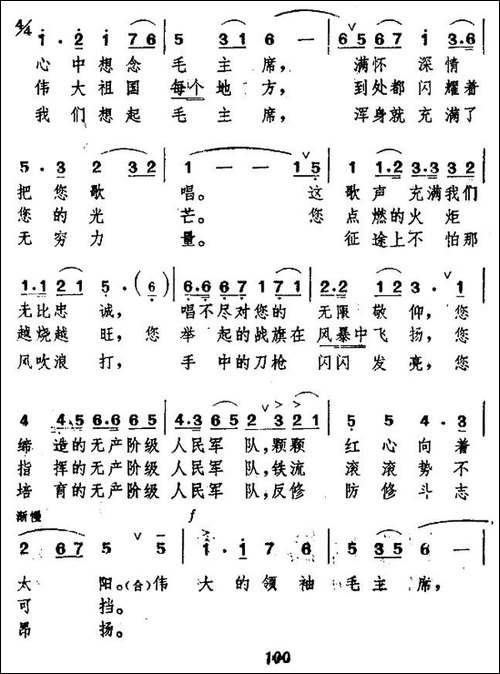 4/4 1·2 1 76 5 31 6 — 65 67 1 3·6
心中想念毛主席，满怀深情
伟大祖国每个地方，到处都闪耀着
我们想起毛主席，浑身就充满了
5·3 2 32 1 — — 15 1 1·2 3·3 32
把您歌唱。这歌声充满我们
您的光芒。您点燃的火炬
无穷力量。征途上不怕那
1·1 21 5·(6) 6·6 67 1 71 2·2 12 3· 1
无比忠诚，唱不尽对您的无限敬仰，您
越烧越旺，您举起的战旗在风暴中飞扬，您
风吹浪打，手中的刀枪闪闪发亮，您
4 4·5 6·6 65 4·3 65 2 321 5 5 4·3
缔造的无产阶级人民军队，颗颗红心向着
指挥的无产阶级人民军队，铁流滚滚势不
培育的无产阶级人民军队，反修防修斗志
渐慢 f
2 67 5 5 1·1 7 6 5 35 6 —
太阳。(合)伟大的领袖毛主席，
可挡。
昂扬。
100